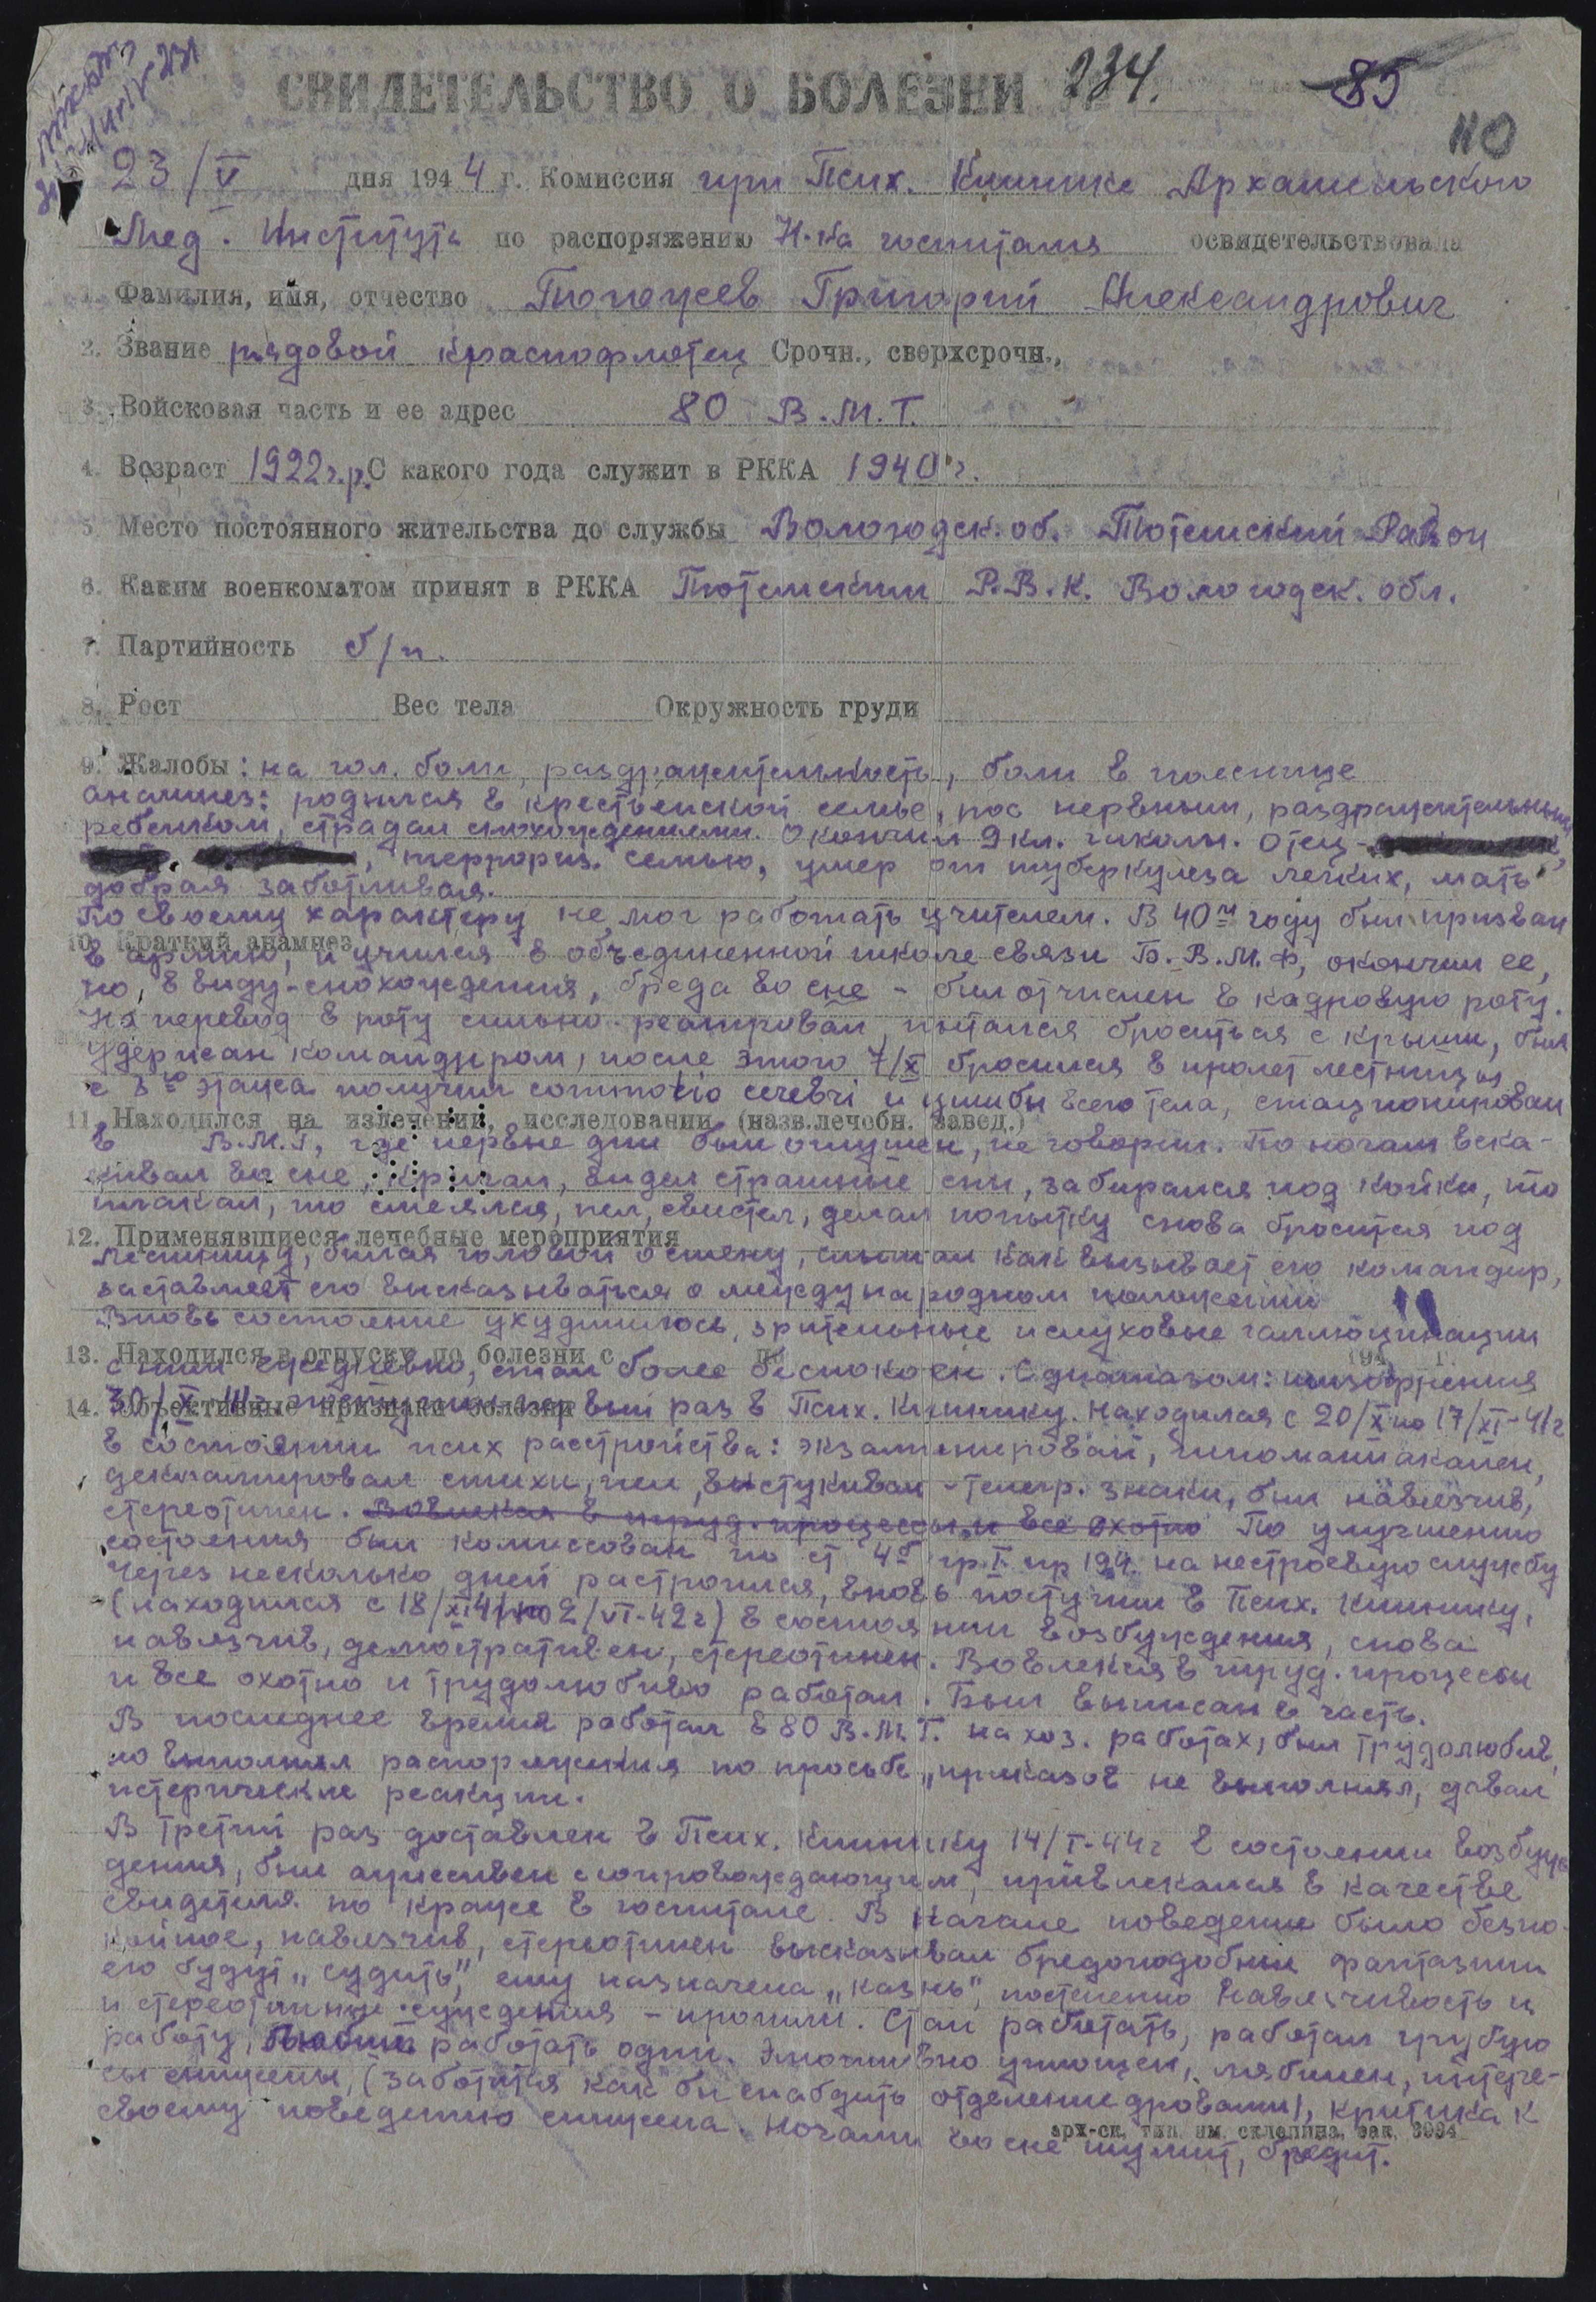 СВИДЕТЕЛЬСТВО О БОЛЕЗНИ № 234.
85
110
23/V дня 1944 г. Комиссия при Псих. Клинике Архангельского
Мед. Института по распоряжению Н-ка госпиталя освидетельствовала
1. Фамилия, имя, отчество Григорий Александрович
2. Звание рядовой краснофлотец Срочн., сверхсрочн.,
3. Войсковая часть и ее адрес 80 В.М.Г.
4. Возраст 1922 г.р. С какого года служит в РККА 1940 г.
5. Место постоянного жительства до службы Вологодск. об. Тотемский Район
6. Каким военкоматом принят в РККА Тотемским Р.В.К. Вологодск. обл.
7. Партийность б/п.
8. Рост Вес тела Окружность груди
9. Жалобы: на гол. боли, раздражительность, боли в пояснице
анамнез: родился в крестьянской семье, рос нервным, раздражительным
ребенком, страдал снохождениями. Окончил 9 кл. школы. Отец -
, террориз. семью, умер от туберкулеза легких, мать
добрая заботливая.
По своему характеру не мог работать учителем. В 40м году был призван
10. Краткий анамнез
в армию, и учился в объединенной школе связи Б.В.М.Ф, окончил ее,
но, в виду-снохождения, бреда во сне - был отчислен в кадровую роту.
На перевод в роту сильно реагировал, пытался броситься с крыши, был
удержан командиром, после этого 7/X бросился в пролет лестницы
с 3го этажа получил commotio cerebri и ушибы всего тела, стационирован
11. Находился на излечении, исследовании (назв. лечебн. завед.)
в В.М.Г, где первые дни был оглушен, не говорил. По ночам вска-
кивал во сне, кричал, видел страшные сны, забирался под койки, то
плакал, то смеялся, пел, свистел, делал попытку снова броситься под
12. Применявшиеся лечебные мероприятия
лестницу, бился головой о стену, слышал как вызывает его командир,
заставляет его высказываться о международном положении
Вновь состояние ухудшилось, зрительные и слуховые галлюцинации
13. Находился в отпуску по болезни с по 194 г.
с ним ежедневно, стал более беспокоен. С диагнозом: шизофрения
14. Объективные признаки болезни
30/X вый раз в Псих. Клинику. Находился с 20/X по 17/XI-41 г
в состоянии псих расстройства: , гипоманиакален,
декламировал стихи, пел, выстукивал - телегр. знаки, был навязчив,
стереотипен. Вовлекся в труд. процессы и все охотно По улучшению
состояния был комиссован по ст 4б гр. I пр 194 на нестроевую службу
Через несколько дней расстроился, вновь поступил в Псих. Клинику,
(находился с 18/XI 41 по 2/VI-42 г) в состоянии возбуждения, снова
навязчив, демостративен, стереотипен. Вовлекся в труд. процессы
и все охотно и трудолюбиво работал. Был выписан в часть.
В последнее время работал в 80 В.М.Г. на хоз. работах, был трудолюбив,
но выполнял распоряжения по просьбе, приказов не выполнял, давал
истерические реакции.
В третий раз доставлен в Псих. Клинику 14/I-44 г в состоянии возбуж
дения, был агрессивен с сопровождающим, привлекался в качестве
свидетеля по краже в госпитале. В начале поведение было беспо-
койное, навязчив, стереотипен высказывал бредоподобные фантазии
его будут „судить", ему назначена „казнь", постепенно навязчивость и
и стереотипные суждения - прошли. Стал работать, работал грубую
работу, любит работать один. Эмоционально уплощен, , интере-
сы снижены, (заботится как бы снабдить отделение дровами), критика к
своему поведению снижена. Ночами во сне шумит, бредит.
арх-ск, тип. им. склепина, зак. 3934